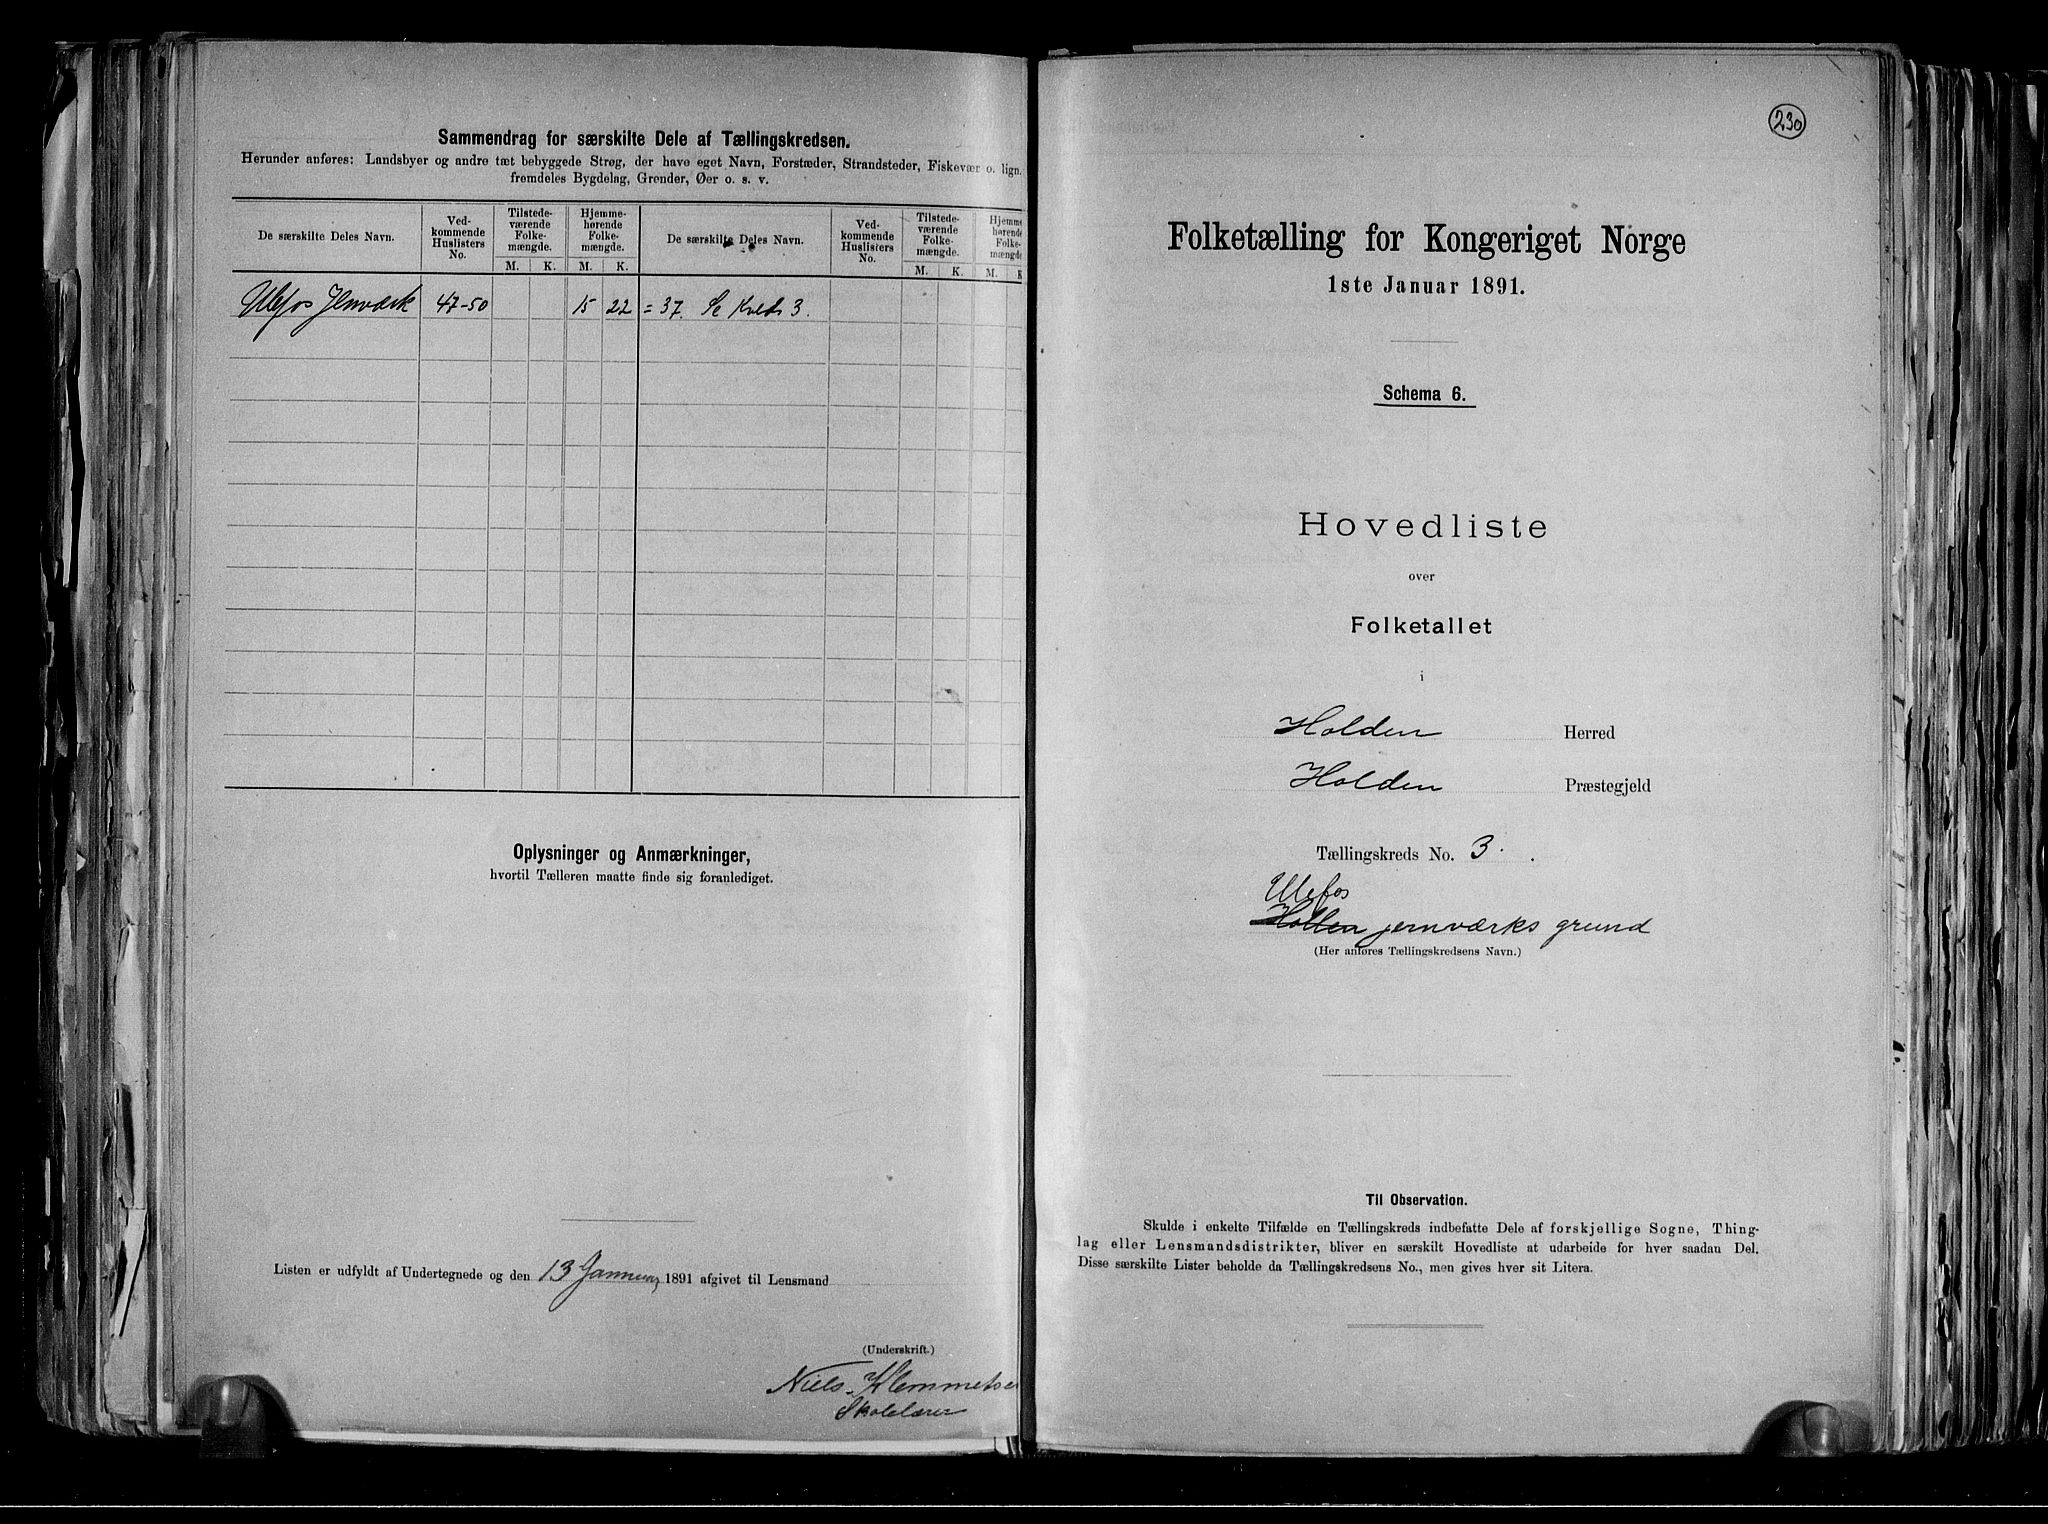 Sammendrag for særskilte Dele af Tællingskredsen.
Herunder anføres: Landsbyer og andre tæt bebyggede Strøg, der have eget Navn, Forstæder, Strandsteder, Fiskevær o. lign.
fremdeles Bygdelag, Grender, Øer o. s. v.
De særskilte Deles Navn. Ved-kommende Huslisters No. Tilstede-værende Folke-mængde. Hjemme-hørende Folke-mængde. De særskilte Deles Navn. Ved-kommende Huslisters No. Tilstede-værende Folke-mængde. Hjemme-hørende Folke-mængde
M. K. M. K. M. K. M. K
Ulefos Jernværk 47-50 15 22 = 37. Se Kreds 3.
Oplysninger og Anmærkninger,
hvortil Tælleren maatte finde sig foranlediget.
Listen er udfyldt af Undertegnede og den 13 Januar 1891 afgivet til Lensmand
(Underskrift.)
Niels Klemmetse
Skolelærer
230
Folketælling for Kongeriget Norge
1ste Januar 1891.
Schema 6.
Hovedliste
over
Folketallet
i
Holden Herred
Holden Præstegjeld
Tællingskreds No. 3.
Ulefos
Hollen jernværks grund
(Her anføres Tællingskredsens Navn.)
Til Observation.
Skulde i enkelte Tilfælde en Tællingskreds indbefatte Dele af forskjellige Sogne, Thing-
lag eller Lensmandsdistrikter, bliver en særskilt Hovedliste at udarbeide for hver saadan Del.
Disse særskilte Lister beholde da Tællingskredsens No., men gives hver sit Litera.